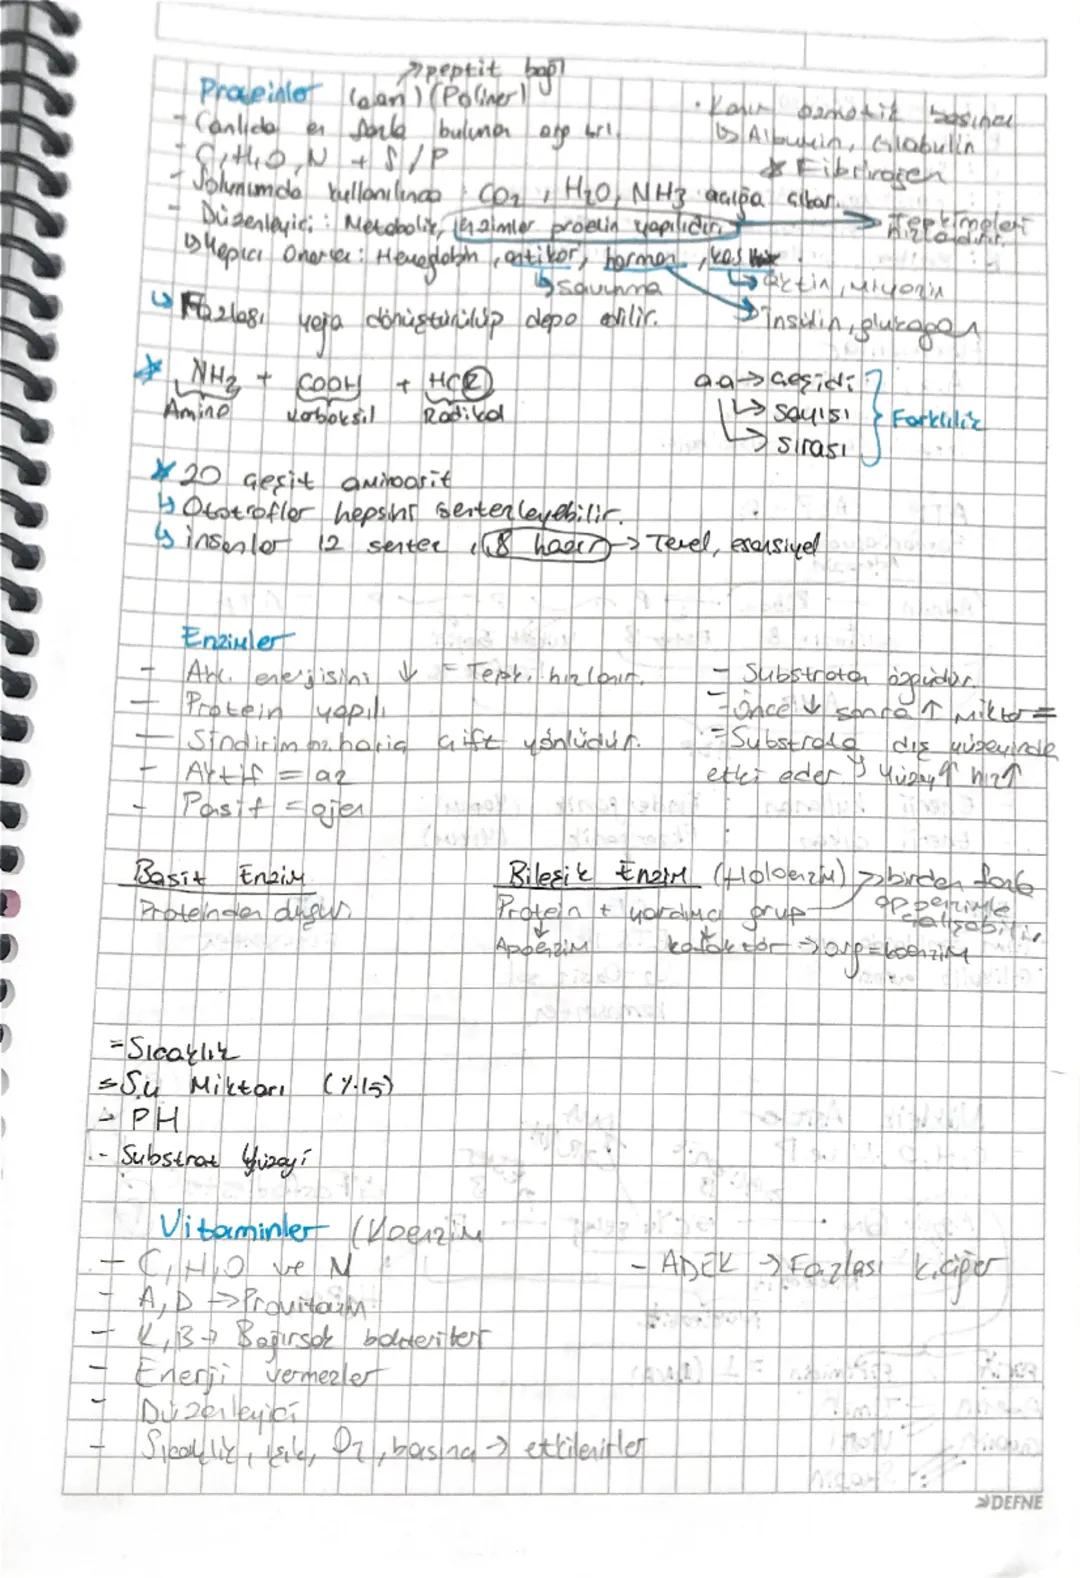 → peptit bağı
Proteinler (a.an) (Polimer)
- Canlıda en fazla bulunan org bil.
- C, H, O, N + S/P
- Solunumda kullanılınca CO2, H2O, NH3 açığa çıkar.
- Düzenleyici : Metabolik, enzimler protein yapılıdır. → Tepkimeleri hızlandırır.
↳ Yapıcı Onarıcı : Hemoglobin, antikor, hormon, kas
↳ savunma
↳ aktin, miyozin
→ insülin, glukagon
↳ Fazlası yağa dönüştürülüp depo edilir.
• Kanın ozmotik basıncı
↳ Albumin, Globulin
* Fibrinojen
* NH2 + COOH + HCR
Amino Karboksil Radikal
a.a → çeşidi
↳ sayısı
↳ sırası
Farklılık
* 20 çeşit aminoasit
↳ Ototroflar hepsini sentezleyebilir.
↳ insanlar 12 sentez, 8 hazır → Temel, esansiyel
Enzimler
- Akt. enerjisini ↓ = Tepk. hızlanır.
- Protein yapılı
- Sindirim enz. hariç çift yönlüdür.
- Aktif = az
- Pasif = ojen
- Substrata özgüdür.
- Önce ↓ sonra ↑ miktar =
- Substrata dış yüzeyinde
etki eder ↳ Yüzey ↑ hız ↑
Basit Enzim
Proteinden oluşur.
Bileşik Enzim (Holoenzim) → birden fazla
apoenzimle
çalışabilir.
Protein + yardımcı grup
Apoenzim kofaktör → org = koenzim
- Sıcaklık
- Su Miktarı (%15)
- PH
- Substrat Yüzeyi
Vitaminler (Koenzim
- C, H, O ve N
- A, D → Provitamin
- K, B → Bağırsak bakterileri
- Enerji vermezler
- Düzenleyici
- Sıcaklık, ışık, O2, basınç → etkilenirler
- ADEK → Fazlası k.ciğer
DEFNE